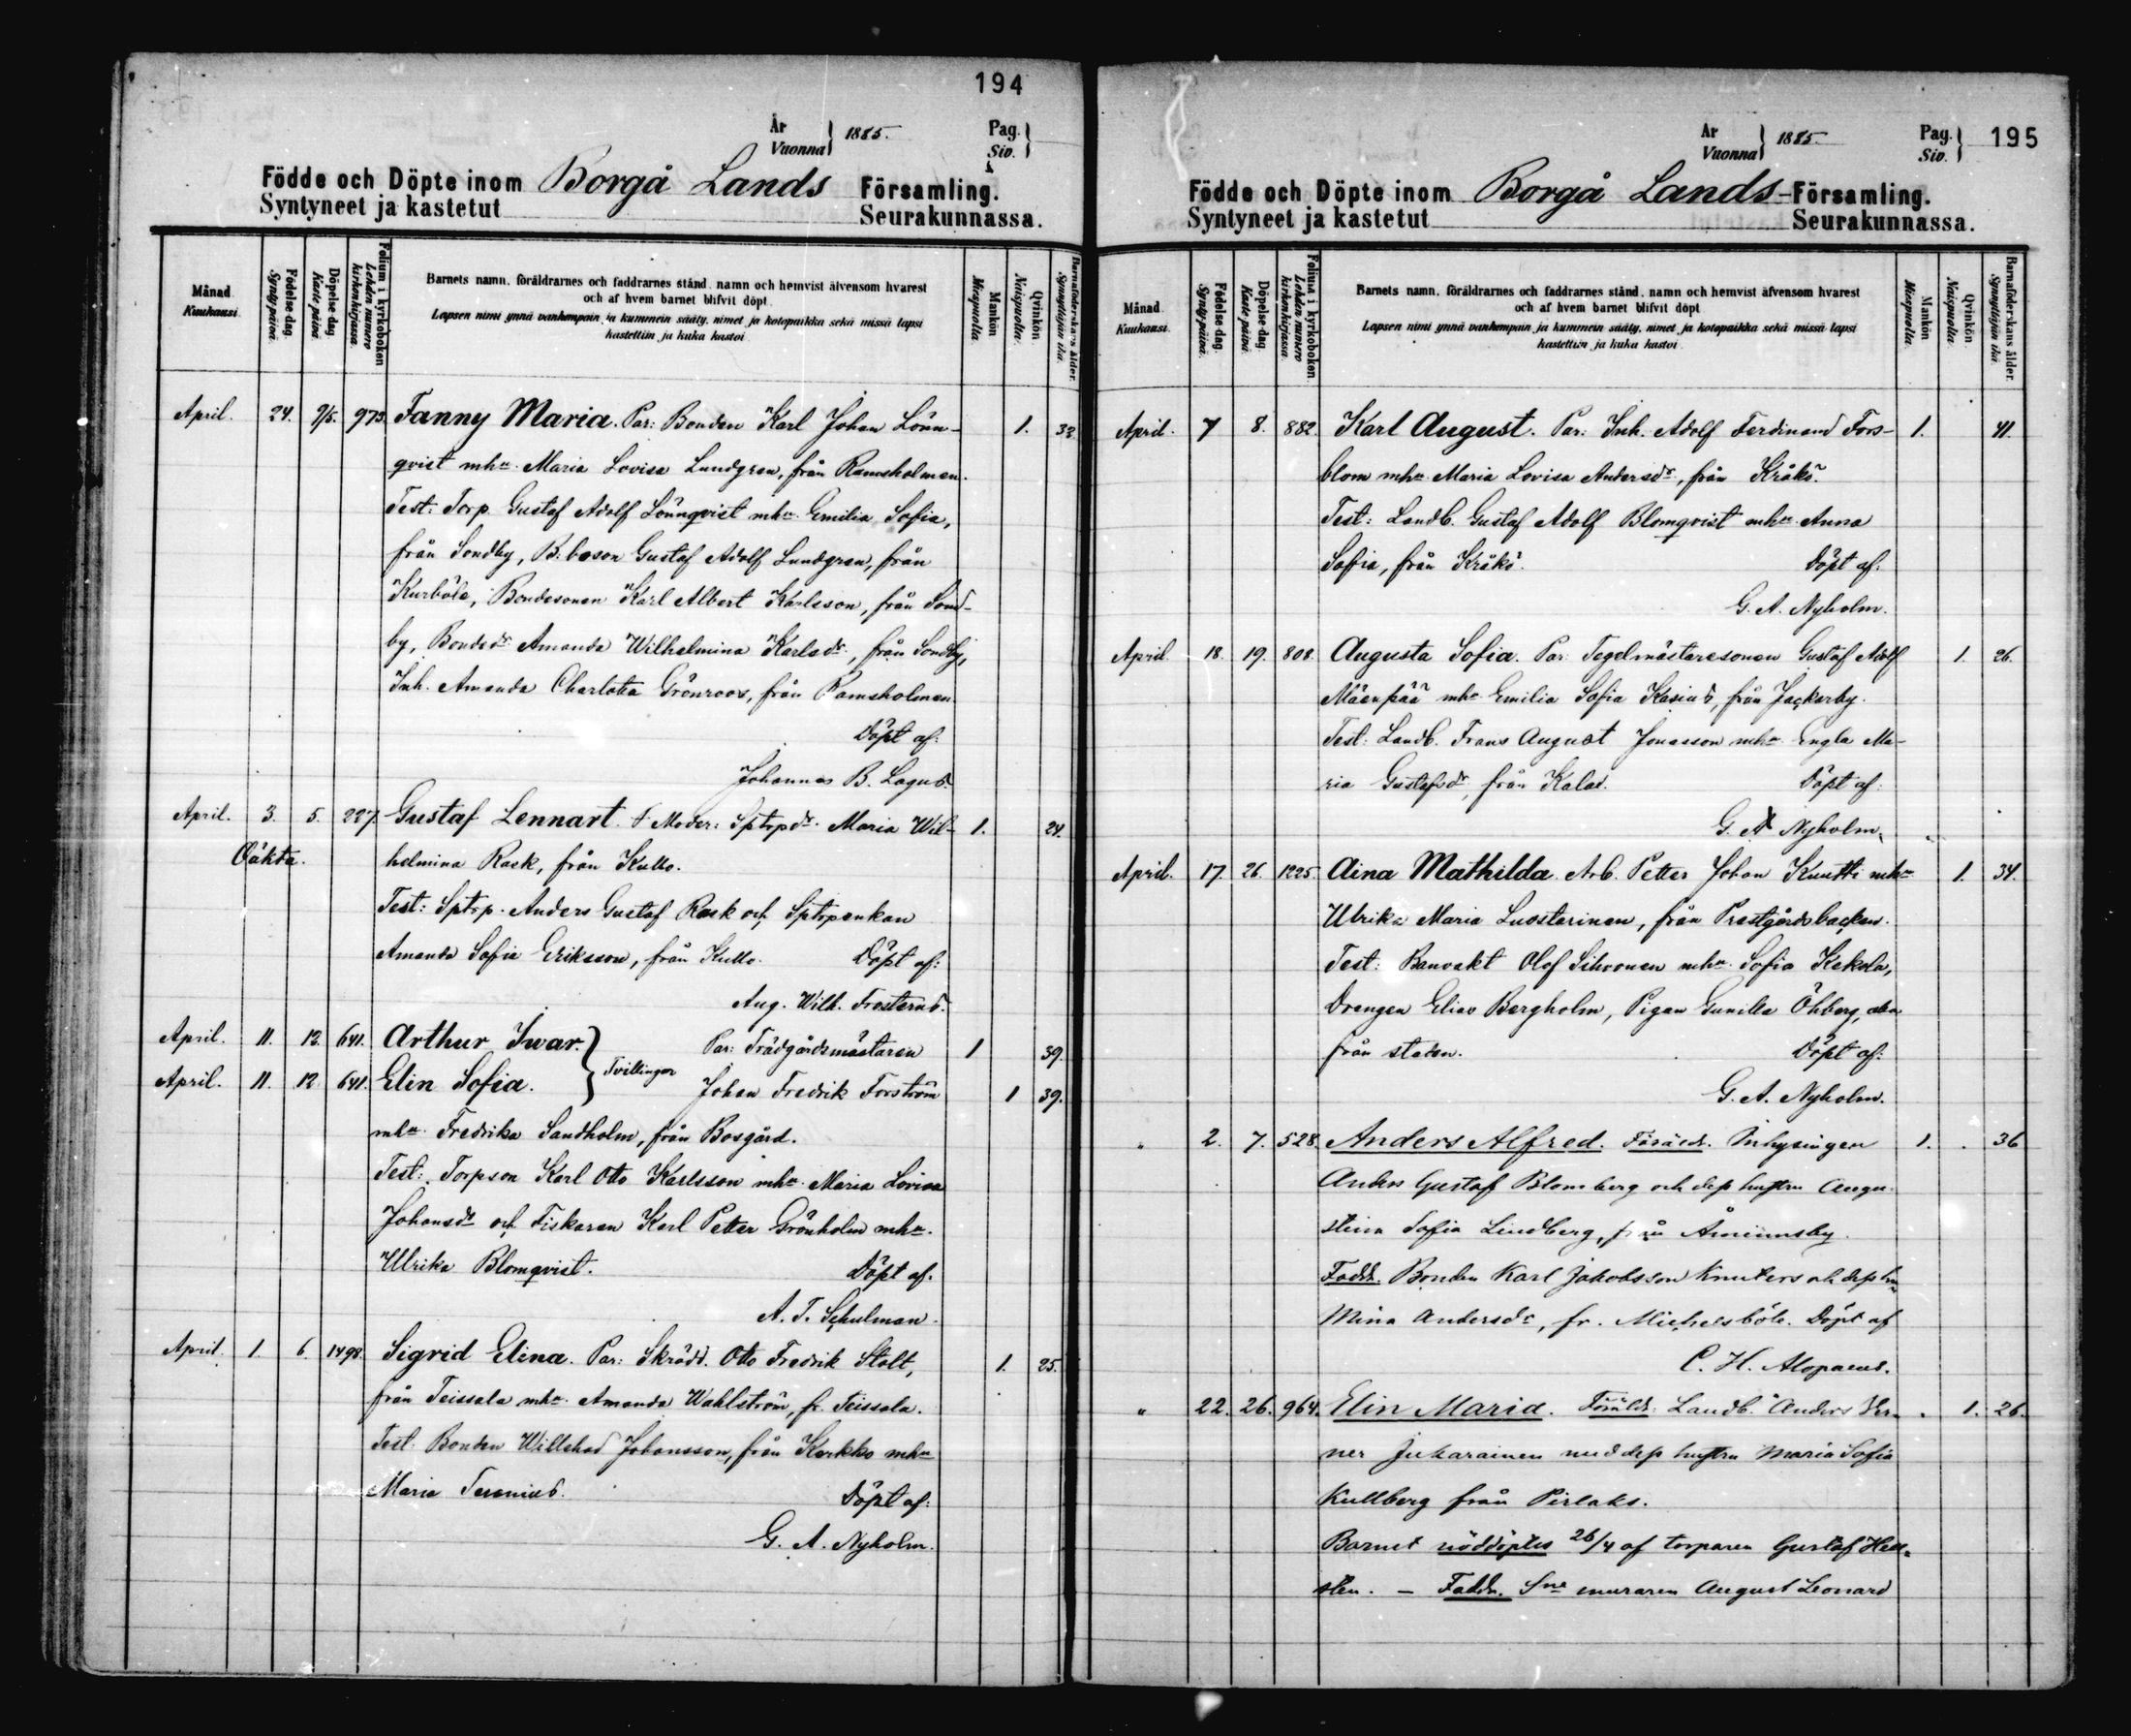 194
År
Vuonna } 1885. Pag.
Siv. }
Födde och Döpte inom Borgå Lands Församling.
Syntyneet ja kastetut Seurakunnassa.
Månad.
Kuukausi.
Födelse dag.
Syntypäivä.
Döpelse dag
Kaste päivä
Folium i kyrkoboken
Lehden numero kirkonkirjassa.
Barnets namn, föräldrarnes och faddrarnes stånd, namn och hemvist äfvensom hvarest
och af hvem barnet blifvit döpt.
Lapsen nimi ynnä vanhempain ja kummein sääty, nimet ja kotopaikka sekä missä lapsi
kastettiin ja kuka kastoi
Mankön
Miespuolia
Qvinkön
Naispuolia.
Barnaföderskans ålder.
Synnyttäjän ikä.
April. 24. 9/5. 973. Fanny Maria. Par: Bonden Karl Johan Lönn- 1. 32
qvist mhu. Maria Lovisa Lundgren, från Ramsholmen.
Test: Torp. Gustaf Adolf Lönnqvist mhu. Emilia Sofia,
från Sondby, B. boson Gustaf Adolf Lundgren, från
Kurböle, Bondesonen Karl Albert Karlsson, från Sond-
by, Bondedr Amanda Wilhelmina Karlsdr, från Sondby,
Inh. Amanda Charlotta Grönroos, från Ramsholmen.
Döpt af:
Johannes B. Lagus.
April. 3. 5. 227. Gustaf Lennart. Moder: Sptrpdr. Maria Wil- 1. 24.
Oäkta. helmina Rask, från Kullo.
Test: Sptrp. Anders Gustaf Rask och Sptrpenkan
Amanda Sofia Eriksson, från Kullo. Döpt af:
Aug. Wilh. Frosterus.
April. 11. 12. 641. Arthur Iwar. } Par: Trädgårdsmästaren 1 39.
April. 11. 12 641. Elin Sofia. } Tvillingar Johan Fredrik Forström 1 39.
mhu. Fredrika Sandholm, från Bosgård.
Test: Torpson Karl Otto Karlsson mhu. Maria Lovisa
Johansdr och Fiskaren Karl Petter Grönholm mhu.
Ulrika Blomqvist. Döpt af.
A. T. Schulman.
April. 1. 6. 1498. Sigrid Elina. Par: Skrädd. Otto Fredrik Stolt, 1. 25.
från Teissala mhu. Amanda Wahlström, fr. Teissala.
Test. Bonden Willehad Johansson, från Karkko mhu
Maria Terenius. Döpt af:
G. A. Nyholm.
År
Vuonna } 1885. Pag.
Siv. } 195
Födde och Döpte inom Borgå Lands- Församling.
Syntyneet ja kastetut Seurakunnassa.
Månad
Kuukausi.
Födelse dag.
Syntypäivä.
Döpelse dag
Kaste päivä.
Folium i kyrkoboken.
Lehden numero kirkonkirjassa.
Barnets namn, föräldrarnes och faddrarnes stånd, namn och hemvist äfvensom hvarest
och af hvem barnet blifvit döpt
Lapsen nimi ynnä vanhempain ja kummein sääty, nimet ja kotopaikka sekä missä lapsi
kastettiin ja kuka kastoi
Mankön
Miespuolia.
Qvinkön
Naispuolia.
Barnaföderskans ålder.
Synnyttäjän ikä
April. 7 8. 882. Karl August. Par: Inh. Adolf Ferdinand Fors- 1. 41.
blom mhu. Maria Lovisa Andersdr, från Kråkö.
Test: Landb. Gustaf Adolf Blomqvist mhu. Anna
Sofia, från Kråkö. Döpt af:
G. A. Nyholm.
April. 18. 19. 808. Augusta Sofia. Par: Tegelmästaresonen Gustaf Adolf 1. 26.
Mäenpää mhu Emilia Sofia Kasius, från Jackarby.
Test: Landb. Frans August Jonasson mhu. Engla Ma-
ria Gustafsdr, från Kalax. Döpt af:
G. A Nyholm.
April. 17. 26. 1225. Aina Mathilda. Arb. Petter Johan Knutti mhu 1. 34.
Ulrika Maria Luostarinen, från Prestgårdsbacken.
Test: Banvakt Olof Sihvonen mhu. Sofia Kekola,
Drengen Elias Bergholm, Pigan Gunilla Öhberg, alla
från staden. Döpt af:
G. A. Nyholm.
" 2. 7. 528. Anders Alfred. Föräldr. Inhysingen 1. 36
Anders Gustaf Blomberg och dess hustru Augu-
stina Sofia Lindberg, från Åminnsby.
Faddr. Bonden Karl Jakobsson Knuters och dess hu
Mina Andersdr, fr. Mickelsböle. Döpt af
C. H. Alopaeus.
" 22. 26. 964. Elin Maria. Föräldr. Landb. Anders Ver- 1. 26.
ner Jukarainen med dess hustru Maria Sofia
Kullberg från Pirlaks.
Barnet nöddöptes 26/4 af torparen Gustaf Hell-
sten. — Faddr. Sne muraren August Leonard